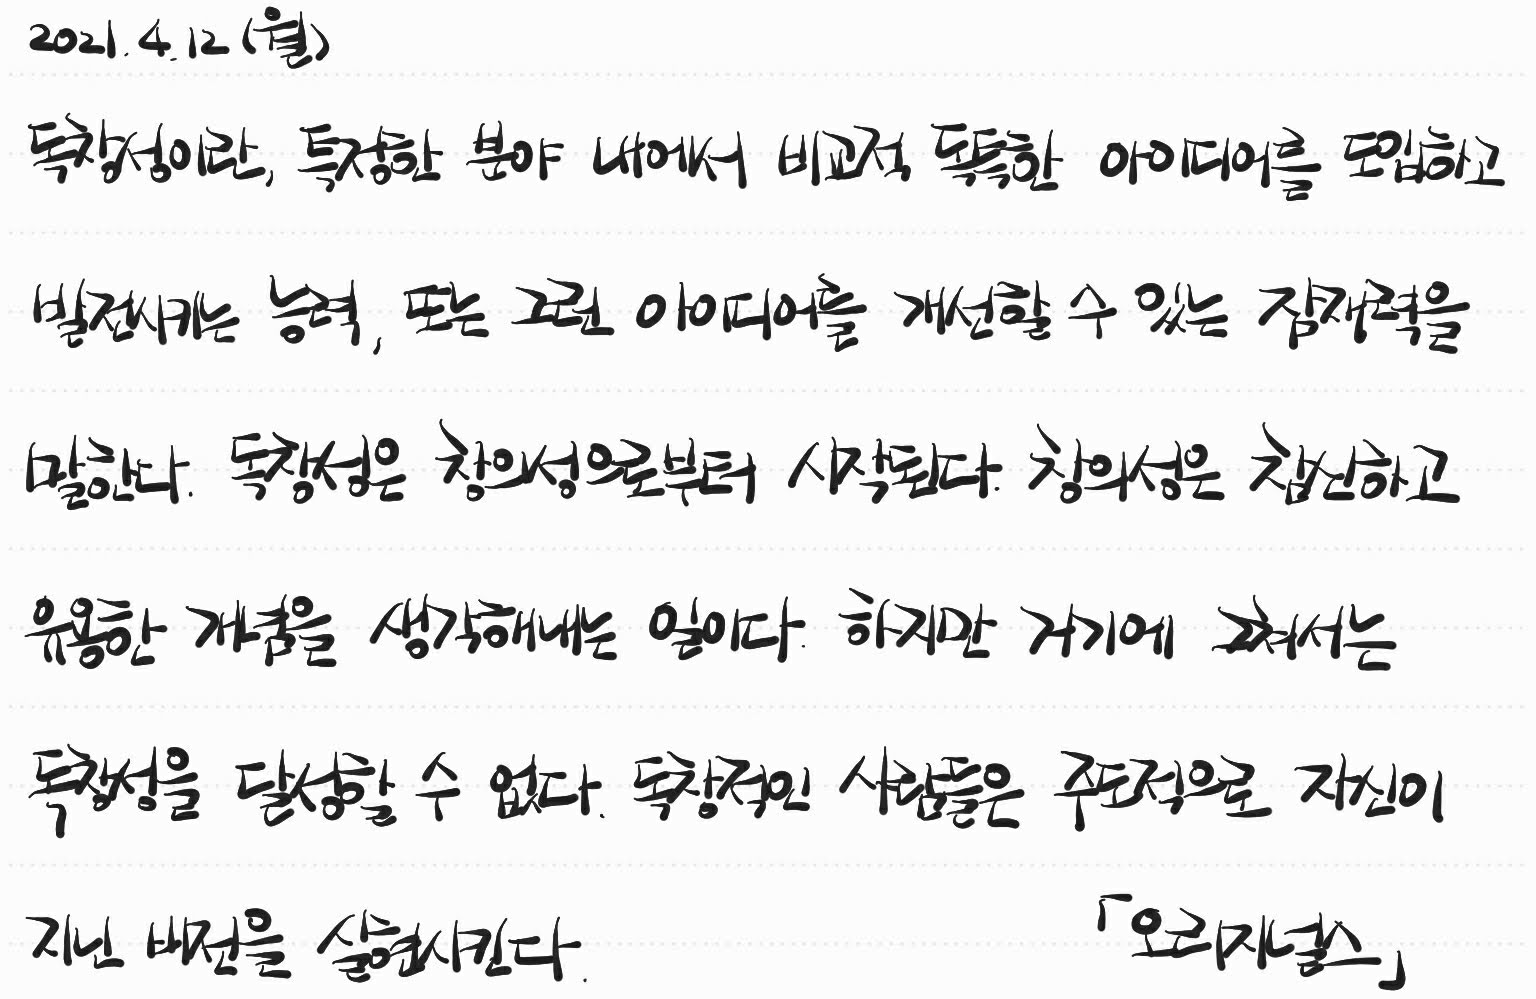 2021. 4. 12 (월)
독창성이란, 특정한 분야 내에서 비교적 독특한 아이디어를 도입하고
발전시키는 능력, 또는 그런 아이디어를 개선할 수 있는 잠재력을
말한다. 독창성은 창의성으로부터 시작된다. 창의성은 참신하고
유용한 개념을 생각해내는 일이다. 하지만 거기에 그쳐서는
독창성을 달성할 수 없다. 독창적인 사람들은 주도적으로 자신이
지닌 비전을 실현시킨다.
「오리지널스」